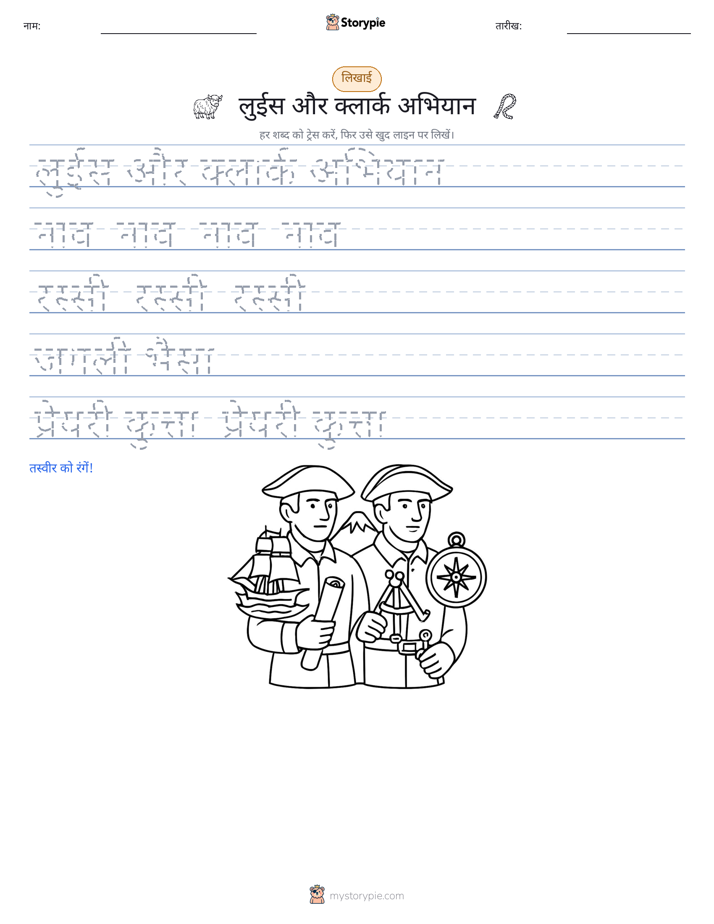 नाम:
Storypie
तारीख:
लिखाई
लुईस और क्लार्क अभियान
हर शब्द को ट्रेस करें, फिर उसे खुद लाइन पर लिखें।
लुईस और क्लार्क अभियान
नाव नाव नाव नाव
रस्सी रस्सी रस्सी
जंगली भैंसा
प्रेयरी कुत्ता प्रेयरी कुत्ता
तस्वीर को रंगें!
mystorypie.com